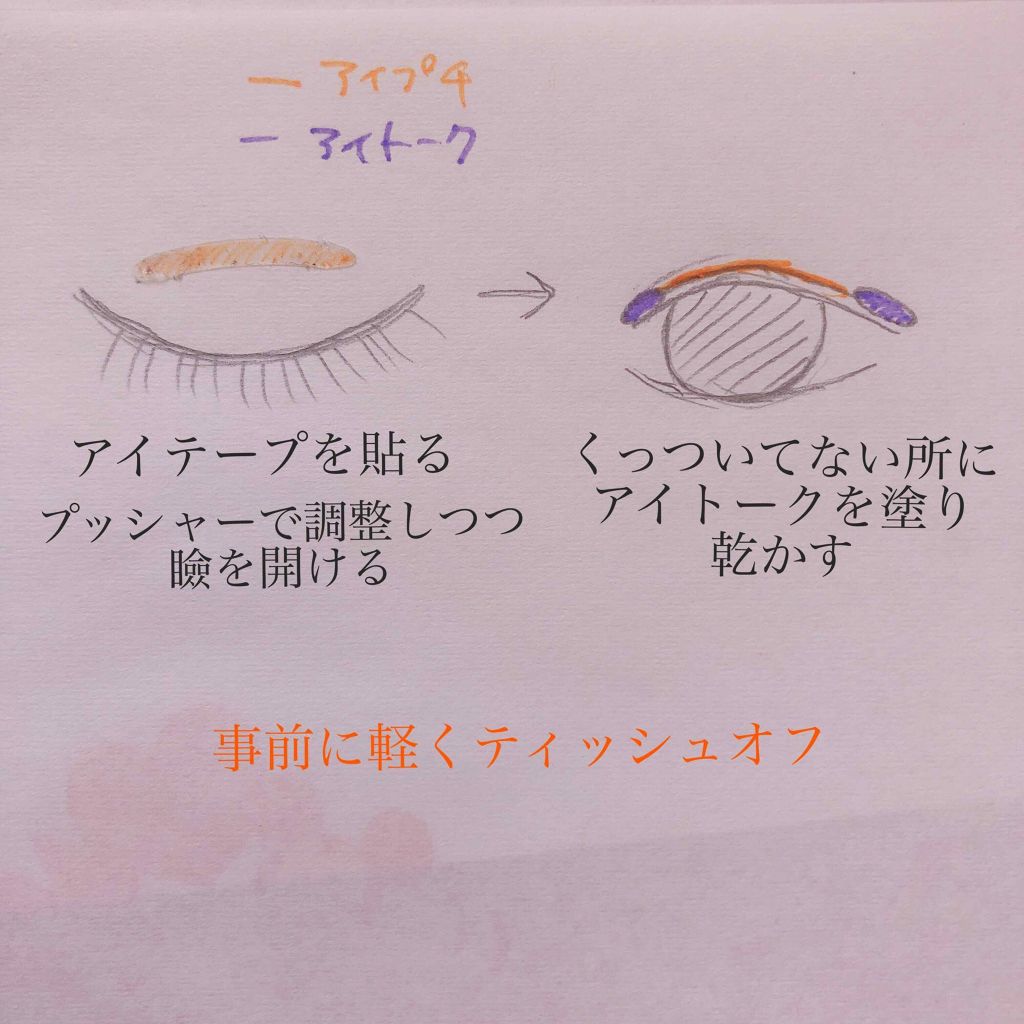 ー アイプチ
ー アイトーク
アイテープを貼る
プッシャーで調整しつつ
瞼を開ける
くっついてない所に
アイトークを塗り
乾かす
事前に軽くティッシュオフ